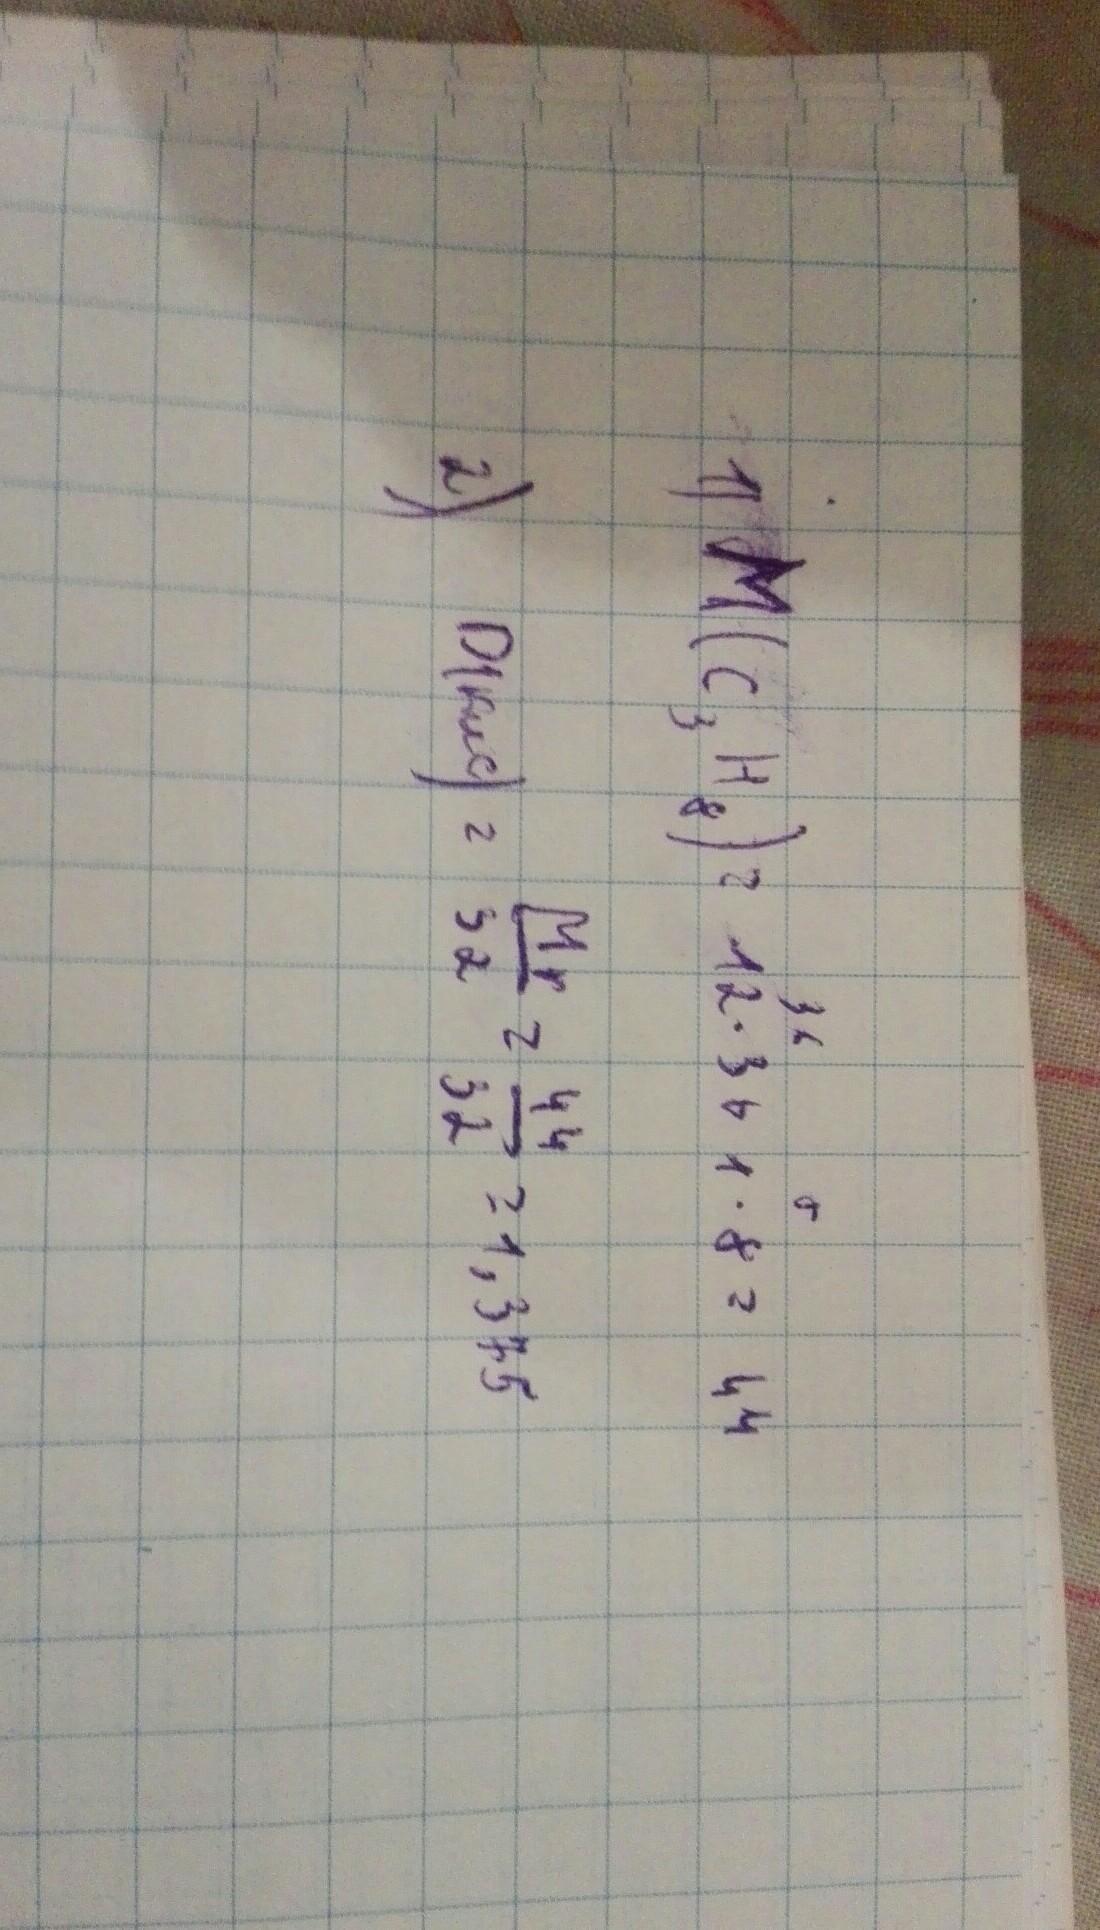 36 8
1) M(C3H8) = 12·3 + 1·8 = 44
2) D(кис) = Mr/32 = 44/32 = 1,375